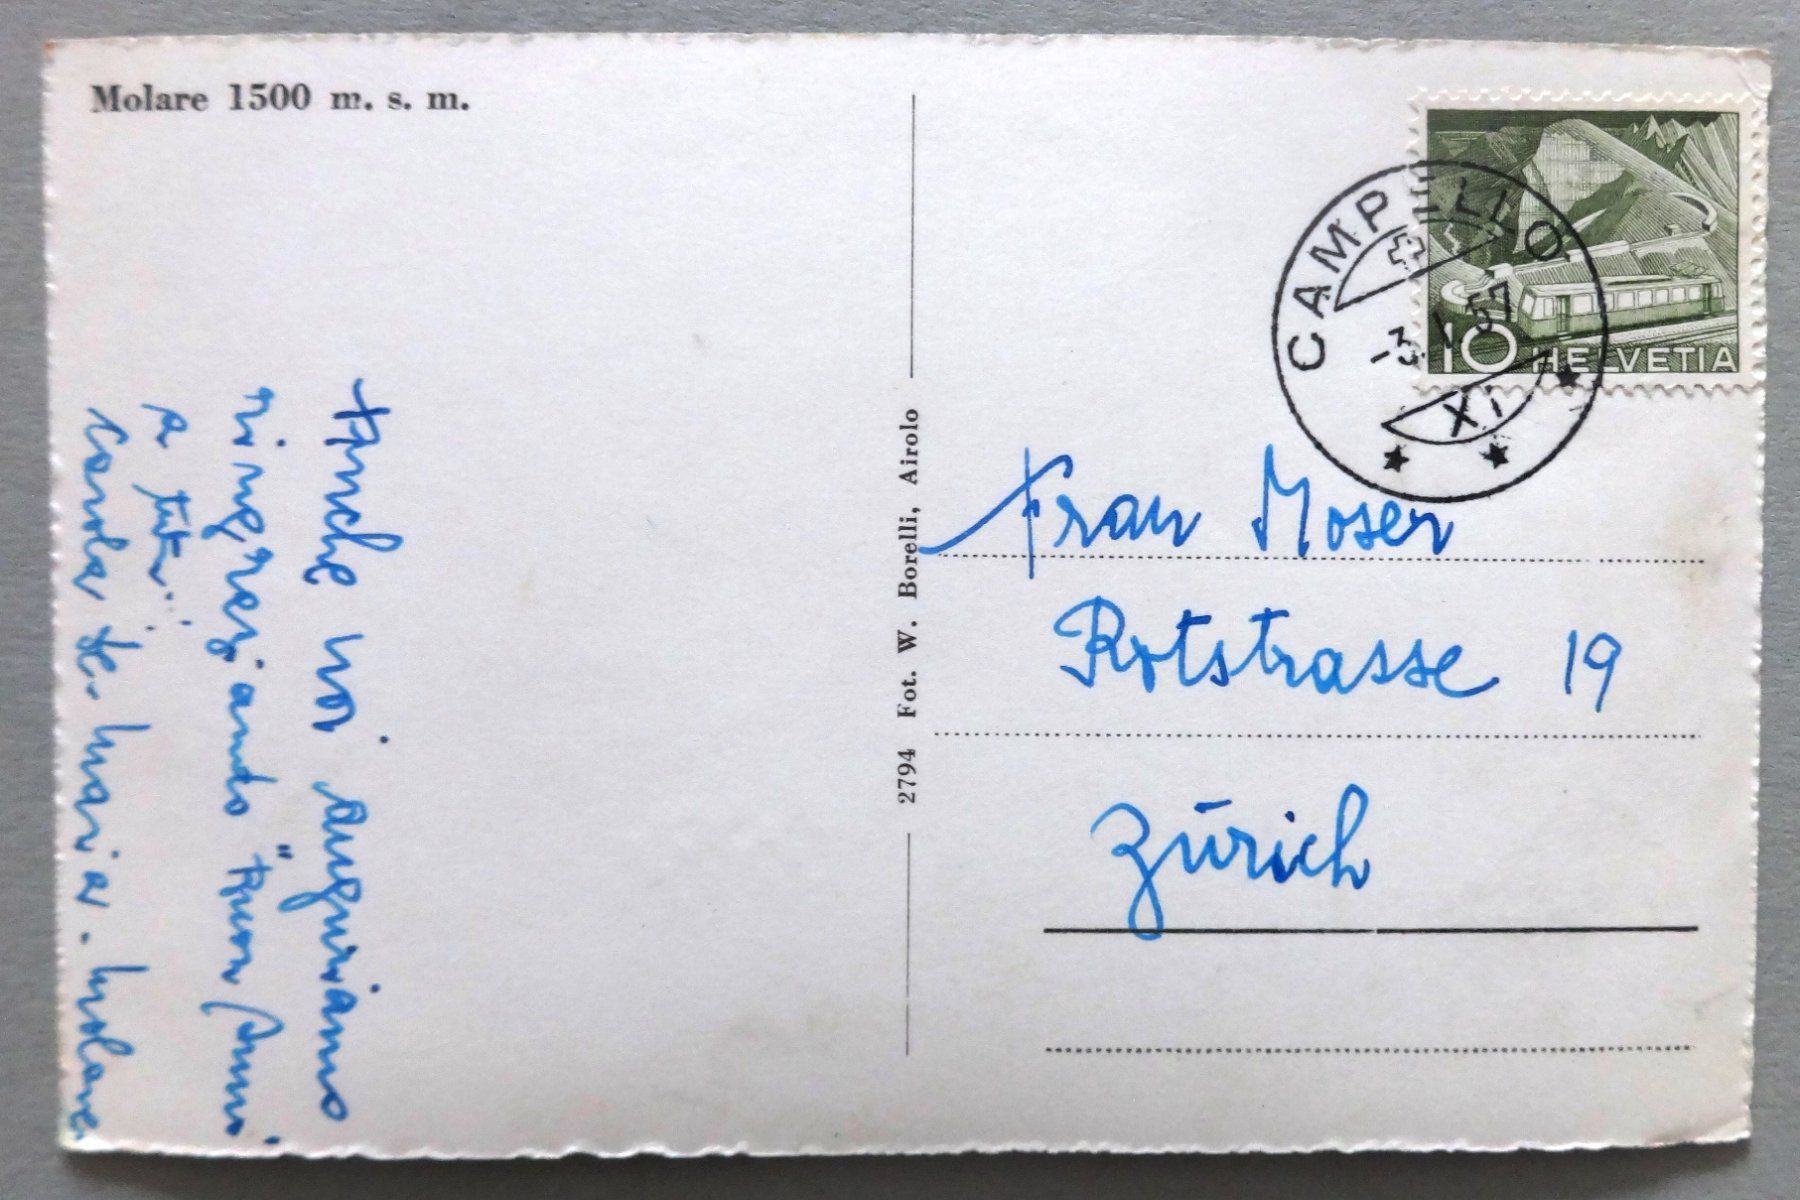 Molare 1500 m. s. m.
Anche noi auguriamo
ringraziando "Buon Anno
a tutti"
Carola De. Maria. Molare
2794 Fot. W. Borelli, Airolo
CAMPELLO
-3. I. 57
XI
10 HELVETIA
Frau Moser
Rotstrasse 19
Zürich